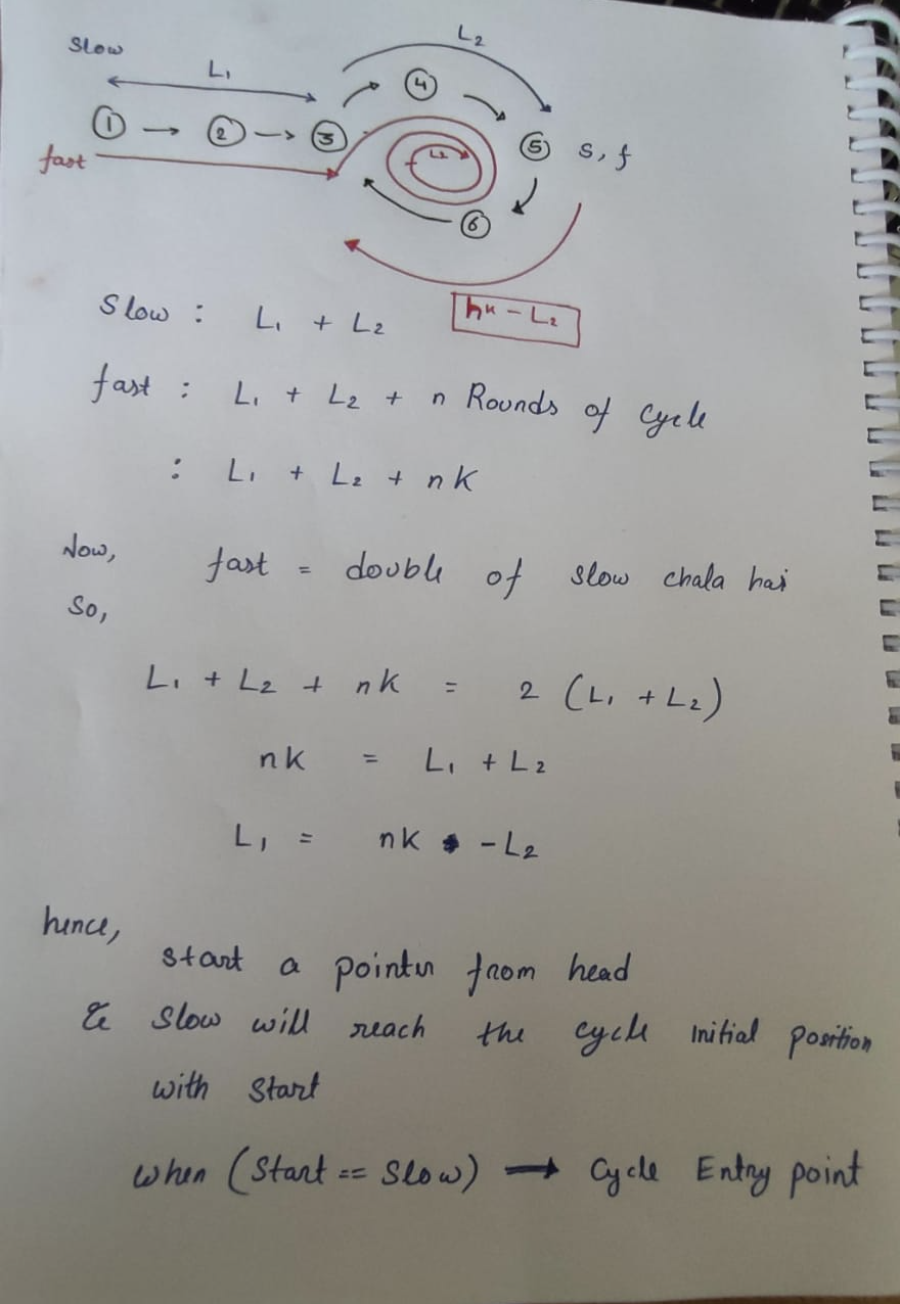 Slow
L₁
L₂
① → ② → ③ → ④ → ⑤ s, f
fast
L₂
⑥
nk - L₂
Slow : L₁ + L₂
fast : L₁ + L₂ + n Rounds of Cycle
: L₁ + L₂ + nK
Now, fast = double of slow chala hai
So,
L₁ + L₂ + nK = 2 (L₁ + L₂)
nK = L₁ + L₂
L₁ = nK - L₂
hence,
start a pointer from head
& slow will reach the cycle initial position
with start
when (Start == Slow) → Cycle Entry point